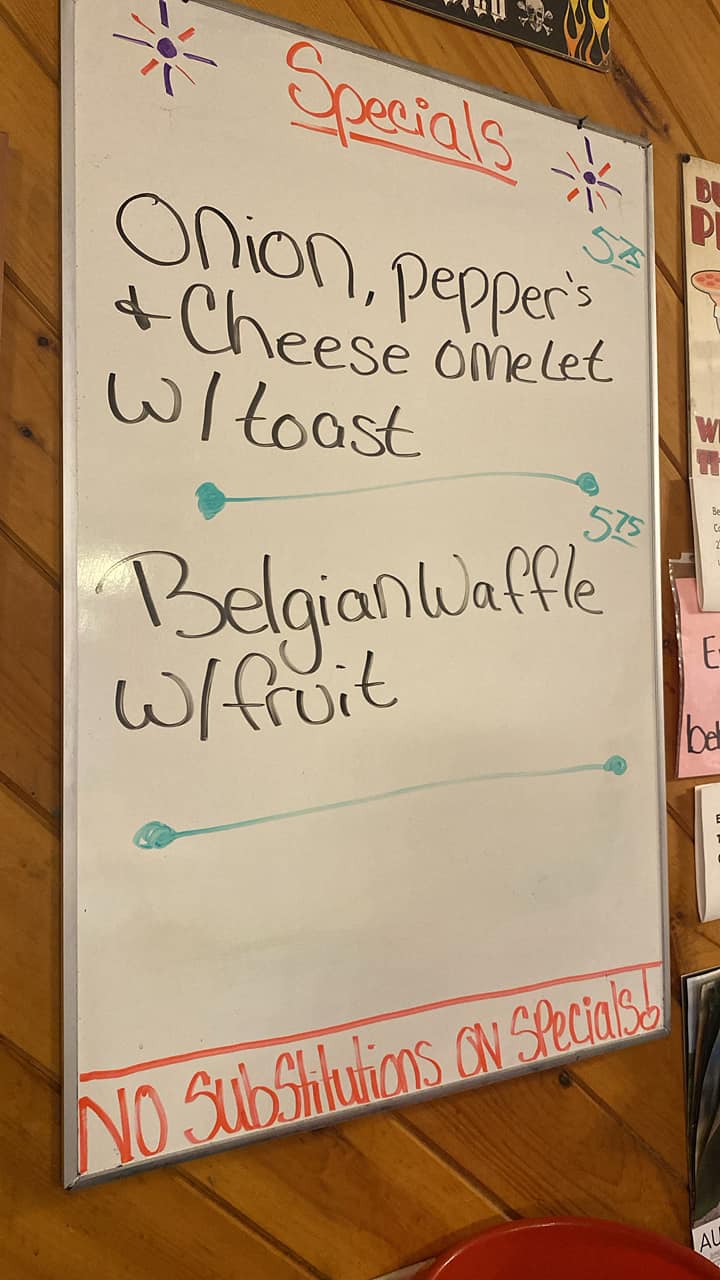 Specials
5.75
Onion, pepper's
+ Cheese omelet
w/toast
5.75
Belgian Waffle
w/fruit
NO SubStitutions ON SPecials!